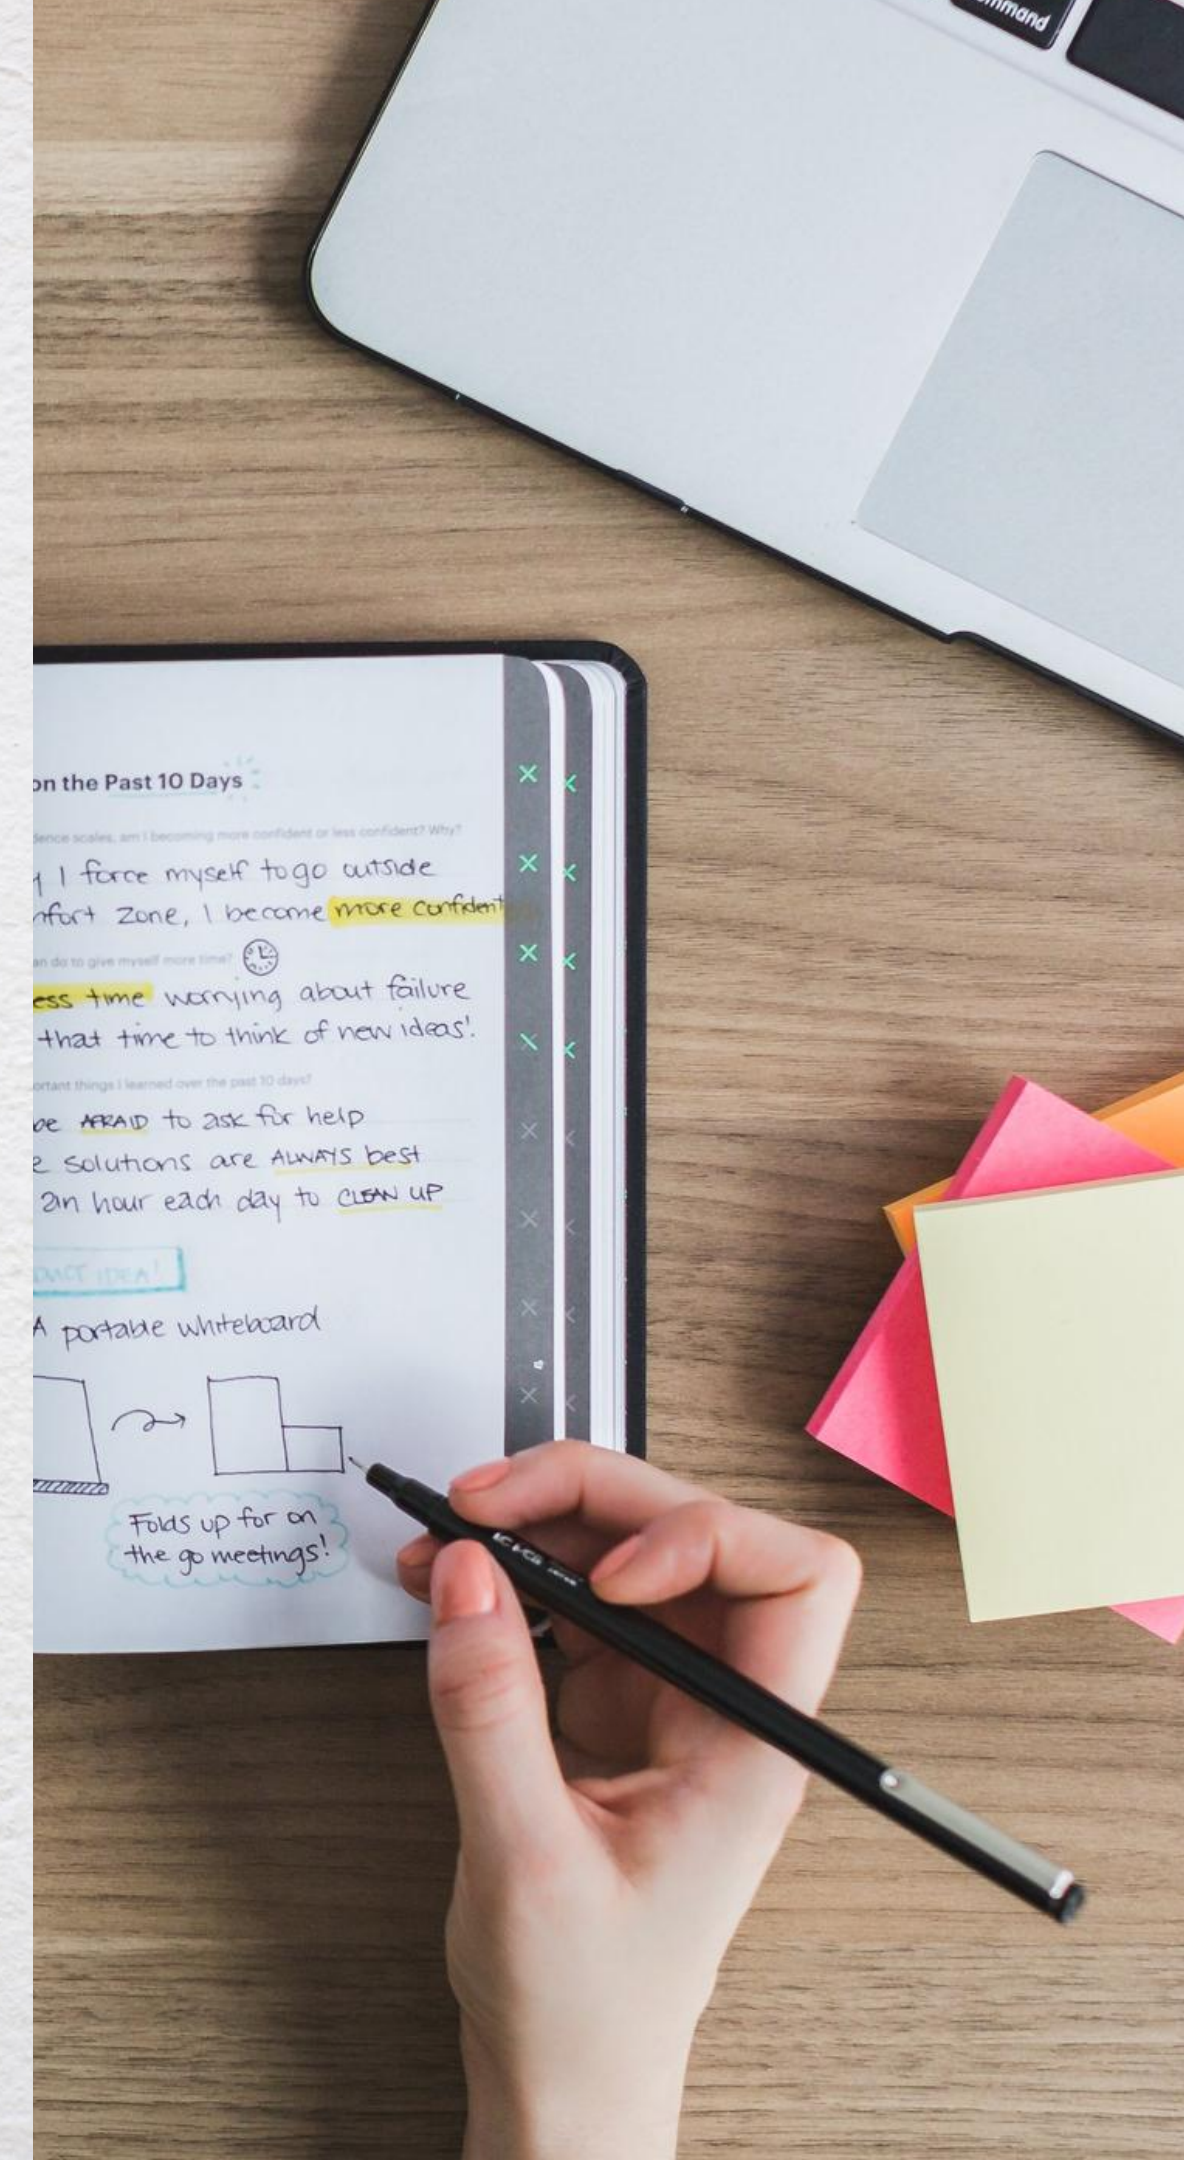 command
on the Past 10 Days
dence scales, am I becoming more confident or less confident? Why?
I force myself to go outside
nfort zone, I become more confident
an do to give myself more time?
ess time worrying about failure
that time to think of new ideas!
ortant things I learned over the past 10 days?
be AFRAID to ask for help
e solutions are ALWAYS best
an hour each day to CLEAN UP
DUCT IDEA!
A portable whiteboard
Folds up for on
the go meetings!